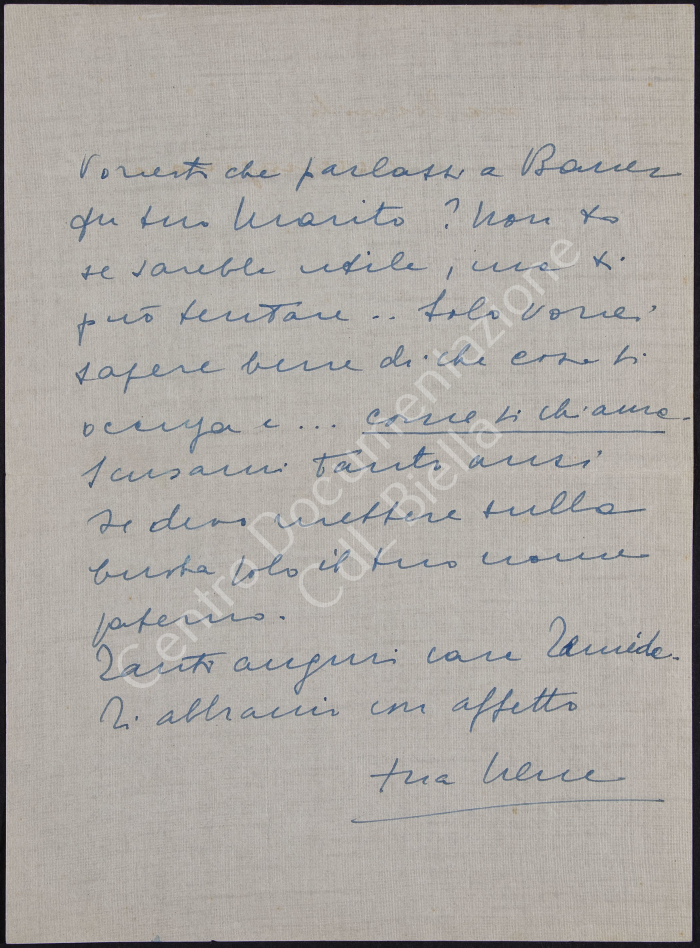 Vorresti che parlassi a Bauer
di tuo marito? Non so
se sarebbe utile, ma si
può tentare .. Solo vorrei
sapere bene di che cosa si
occupa e ... come si chiama.
Scusami tanto anzi
se devo mettere sulla
busta solo il tuo nome
paterno.
Tanti auguri cara
Ti abbraccio con affetto
tua
Centro Documentazione
CdL Biella